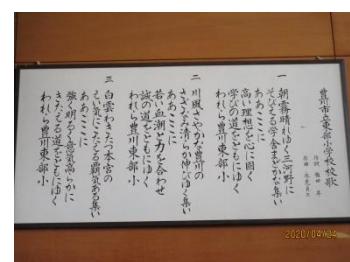 豊川市立東部小学校校歌
一
朝霧晴れゆく三河野に
そびえる学舎まどかな集い
ああここに
高い理想を心に固く
学びの道をともにゆく
われら豊川東部小
二
川風さやかな豊川の
さざなみ清らか伸びゆく集い
ああここに
若い血潮と力を合わせ
誠の道をともにゆく
われら豊川東部小
三
白雲わきたつ本宮の
えい気にこたえる覇気ある集い
ああここに
強く明るく意気高らかに
きたえる道をともにゆく
われら豊川東部小
2020/04/04